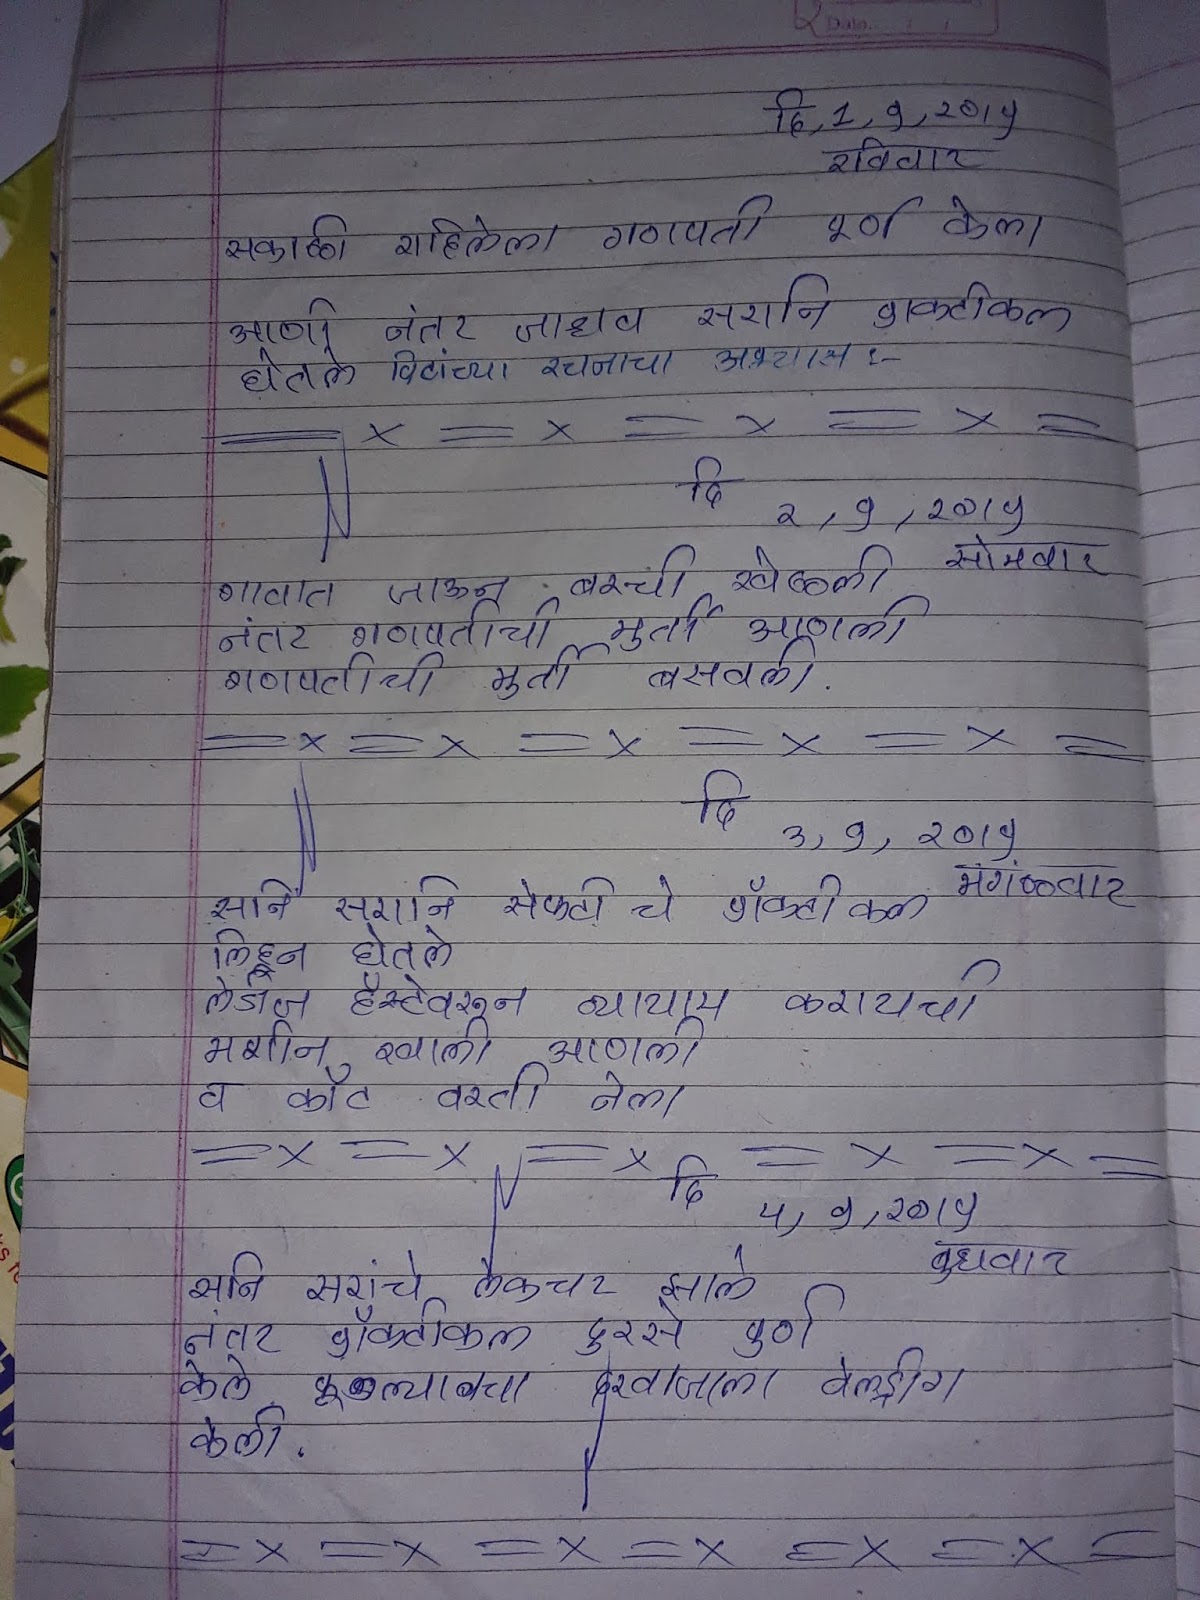 Date
दि, 1, ९, २०१९
रविवार
सकाळी राहिलेला गणपती पूर्ण केला
आणी नंतर जाधव सरानि प्राकटीकल
घेतले विटांच्या रचनाचा अभ्यास :-
= x = x = x = x =
दि
२, ९, २०१९
सोमवार
गावात जाऊन बरची खेळली
नंतर गणपतीची मुर्ती आणली
गणपतीची मुर्ती बसवली.
= x = x = x = x = x =
दि
३, ९, २०१९
मंगंळवार
सनि सरानि सेफ्टी चे प्रॉक्टीकल
लिहून घेतले
लेडीज हॅस्टेवरून व्यायाम करायची
मशीन खाली आणली
व कॉट वरती नेला
= x = x = x = x = x =
दि
४, ९, २०१९
बुधवार
सनि सरांचे लेकचर झाले
नंतर प्रॉक्टीकल दुरसे पुर्ण
केले दरवाजाला वेल्ड्रींग
केली.
= x = x = x = x = x = x =